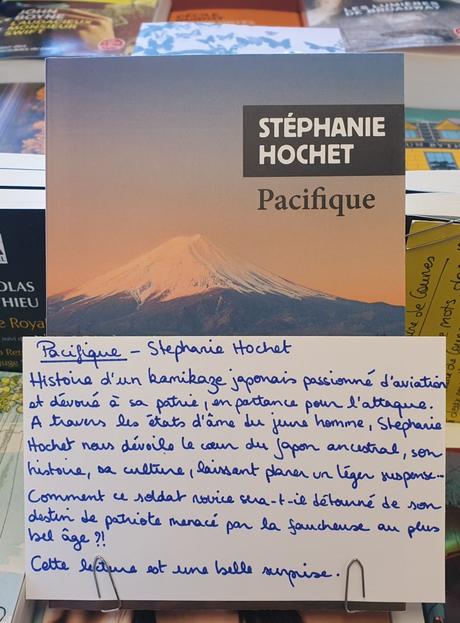 JOHN
BOYNE
L'AUDACIEUX
MONSIEUR
SWIFT
CÉCILE
LES LUMIÈRES
STÉPHANIE
HOCHET
Pacifique
OLAS
HIEU
e Royal
Pacifique - Stephanie Hochet
Histoire d'un kamikaze japonais passionné d'aviation
et dévoué à sa patrie, en partance pour l'attaque.
A travers les états d'âme du jeune homme, Stephanie
Hochet nous dévoile le cœur du Japon ancestral, son
histoire, sa culture, laissant planer un léger suspense...
Comment ce soldat novice sera-t-il détourné de son
destin de patriote menacé par la faucheuse au plus
bel âge ?!
Cette lecture est une belle surprise.